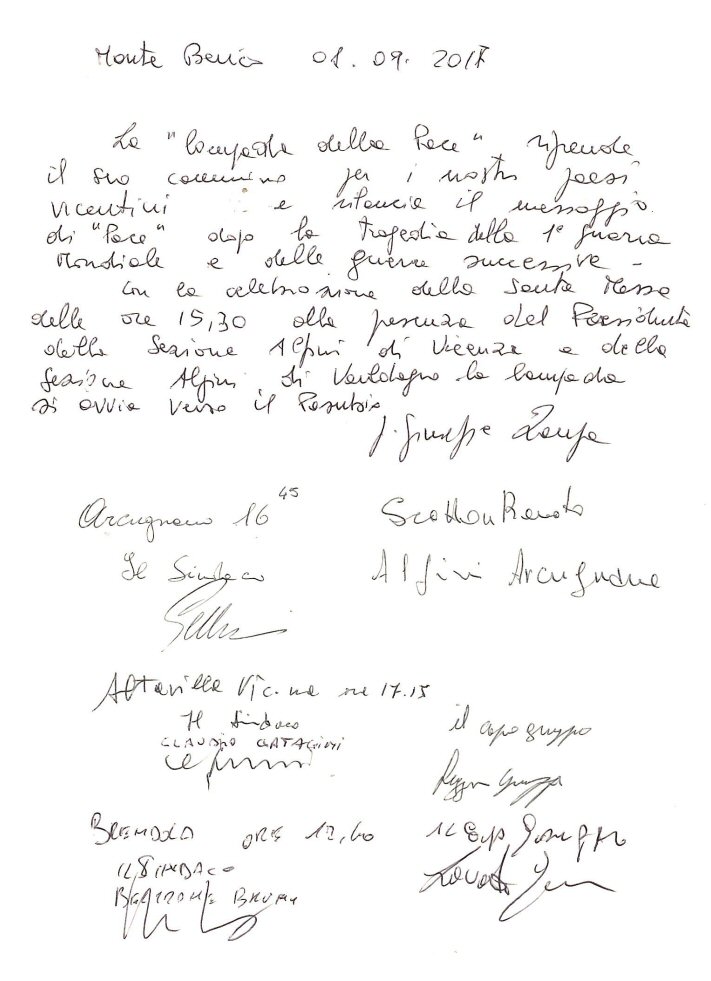 Monte Berico 01.09.2017
La "lampada della Pace" riprende
il suo cammino per i nostri paesi
vicentini e rilancia il messaggio
di "Pace" dopo la tragedia della 1ª guerra
Mondiale e delle guerre successive -
Con la celebrazione della Santa Messa
delle ore 15,30 alla presenza del Presidente
della Sezione Alpini di Vicenza e della
Sezione Alpini di Valdagno la lampada
si avvia verso il Pasubio
Giuseppe
Arcugnano 16 45
Scotton Renato
Il Sindaco
Alpini Arcugnano
Altavilla Vic.na ore 17.15
Il Sindaco
CLAUDIO CATAGINI
il capogruppo
BRENDOLA ORE 17,40
IL SINDACO
BELTRAME BRUNO
IL Capo Gruppo